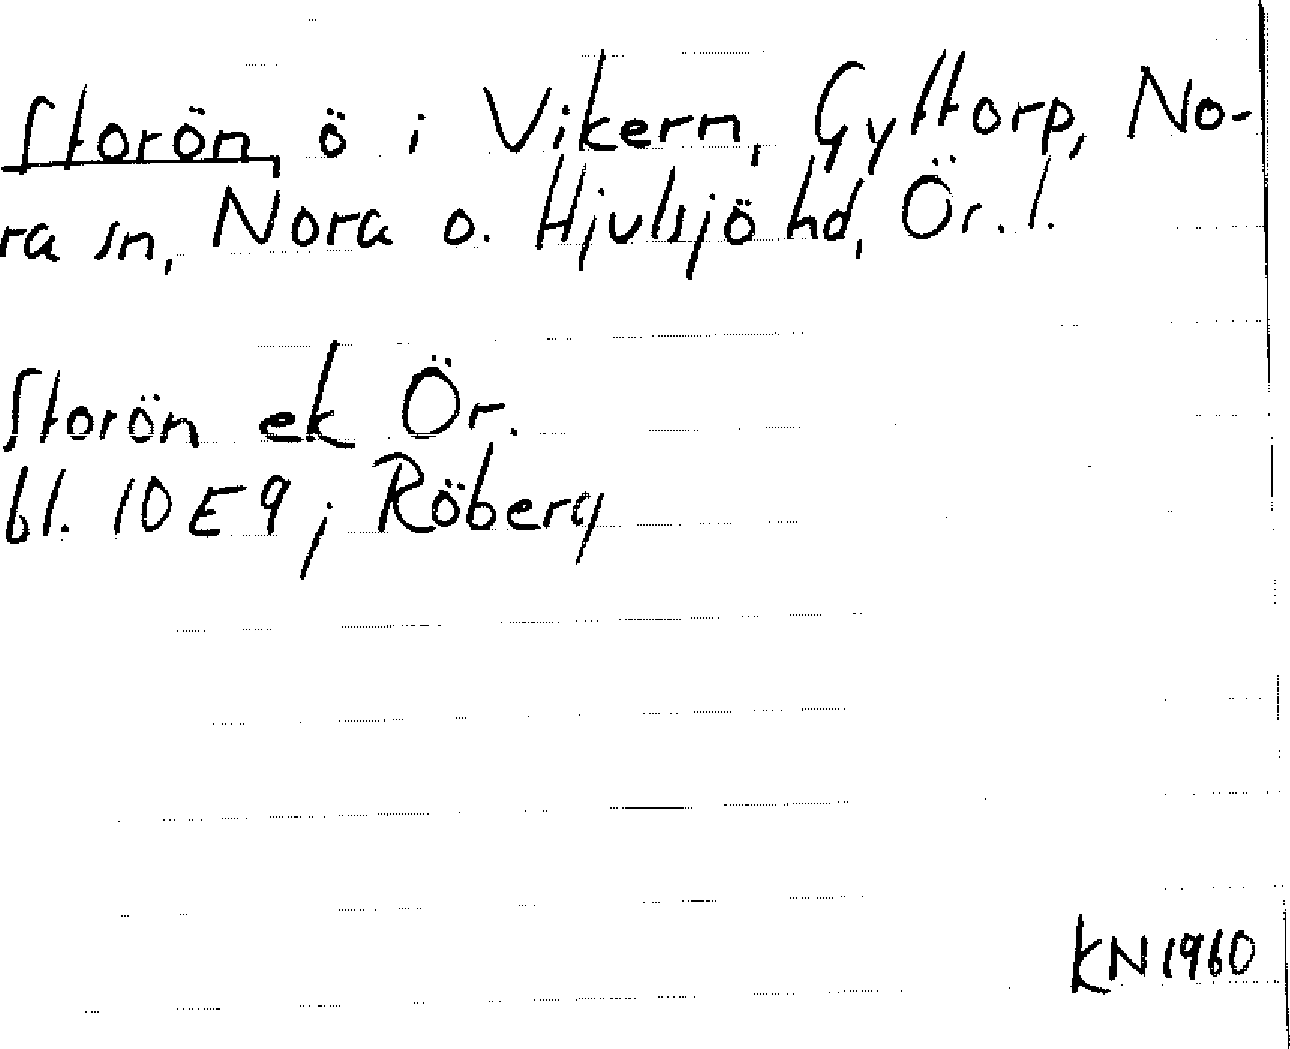 Storön, ö i Vikern, Gyttorp, No-
ra sn, Nora o. Hjulsjö hd, Ör. l.
Storön ek Ör.
bl. 10E9; Röberg
KN1960